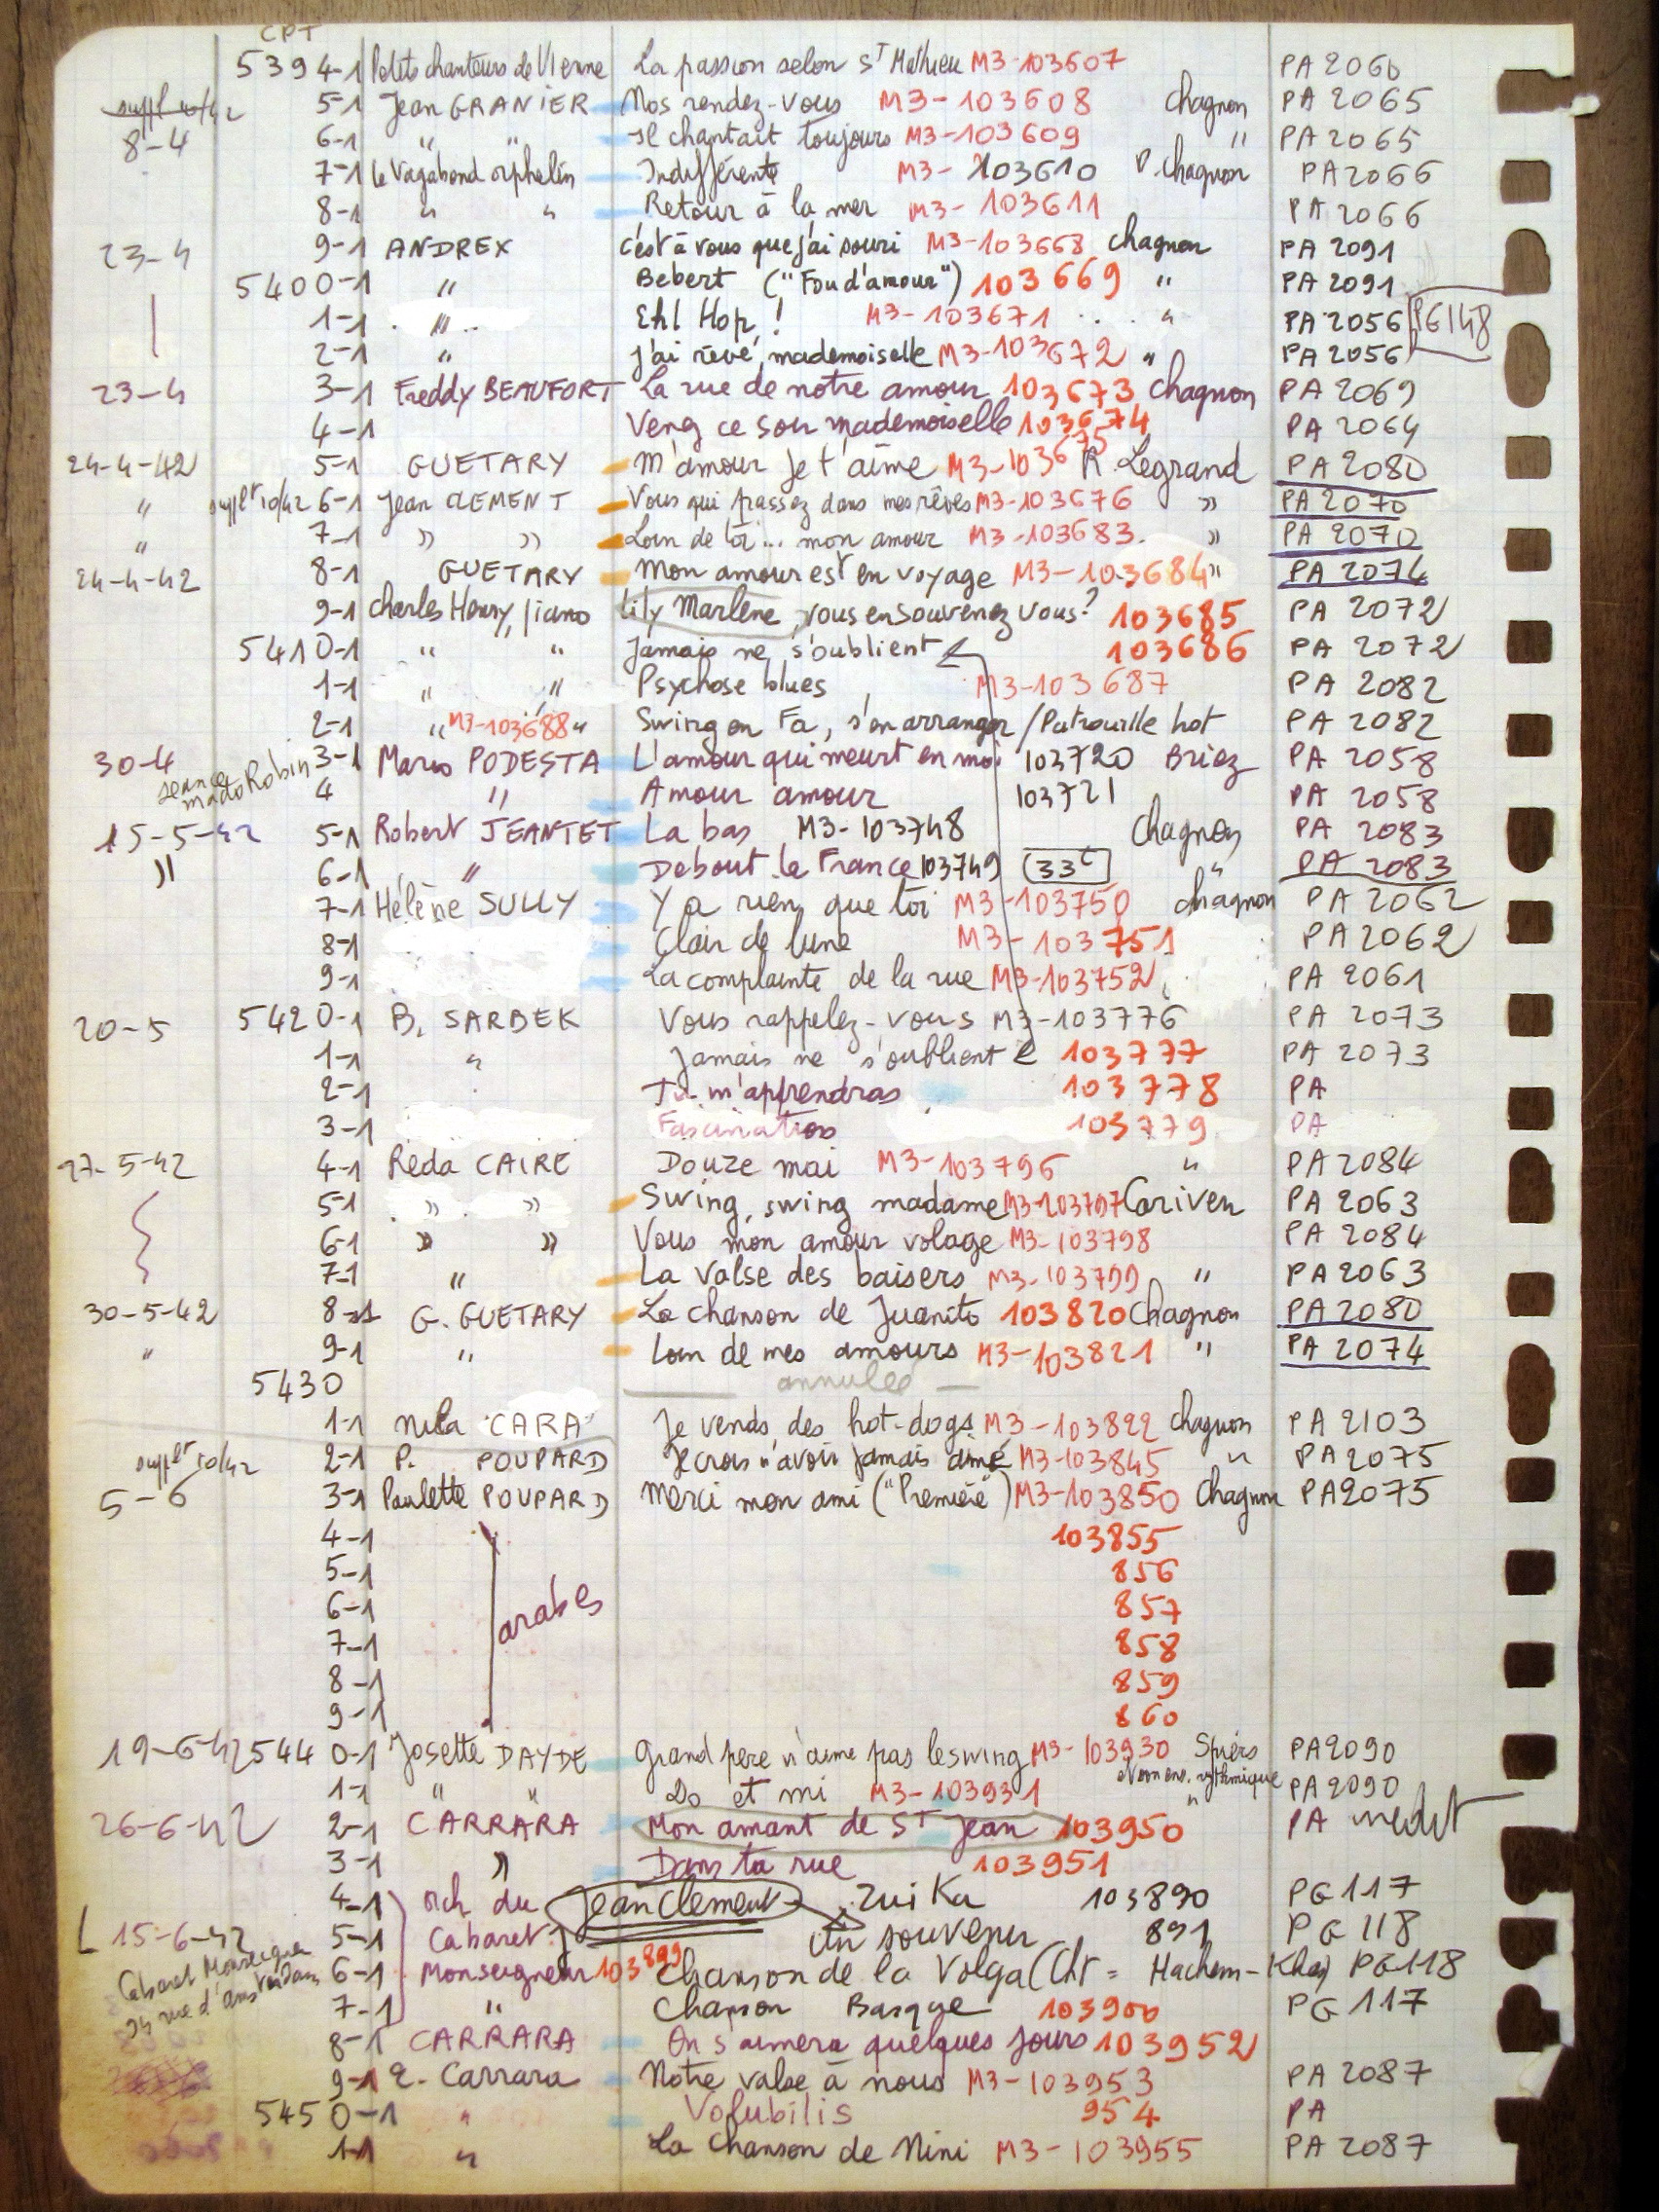 CPT
5394-1 Petits chanteurs de Vienne La passion selon St Mathieu M3-103607 PA 2060
suppl 10/42 5-1 Jean GRANIER Nos rendez-vous M3-103608 Chagnon PA 2065
8-4 6-1 " " Il chantait toujours M3-103609 " PA 2065
7-1 Le Vagabond orphelin Indifférente M3-103610 P. Chagnon PA 2066
8-1 " " Retour à la mer M3-103611 PA 2066
23-4 9-1 ANDREX C'est à vous que j'ai souri M3-103668 Chagnon PA 2091
5400-1 " Bebert ("Fou d'amour") 103669 " PA 2091
1-1 " Eh! Hop! M3-103671 " PA 2056 PG148
2-1 " J'ai rêvé mademoiselle M3-103672 " PA 2056
23-4 3-1 Freddy BEAUFORT La rue de notre amour 103673 Chagnon PA 2069
4-1 Venez ce soir mademoiselle 103674 PA 2064
24-4-42 5-1 GUETARY M'amour je t'aime M3-103675 R. Legrand PA 2080
" supplt 10/42 6-1 Jean CLEMENT Vous qui passez dans mes rêves M3-103676 " PA 2070
" 7-1 " " Loin de toi... mon amour M3-103683 " PA 2070
24-4-42 8-1 GUETARY Mon amour est en voyage M3-103684 " PA 2074
9-1 Charles Henry, piano Lily Marlène, vous en souvenez vous? 103685 PA 2072
5410-1 " " Jamais ne s'oublient 103686 PA 2072
1-1 " " Psychose blues M3-103687 PA 2082
2-1 " M3-103688 " Swing en Fa, s'en arranger / Patrouille hot PA 2082
30-4 3-1 Mario PODESTA L'amour qui meurt en moi 103720 Briez PA 2058
seance Mado Robin 4 " Amour amour 103721 PA 2058
15-5-42 5-1 Robert JEANTET La bas M3-103748 Chagnon PA 2083
" 6-1 " Debout la France 103749 33c " PA 2083
7-1 Hélène SULLY Y a rien que toi M3-103750 Chagnon PA 2062
8-1 Clair de lune M3-103751 PA 2062
9-1 La complainte de la rue M3-103752 PA 2061
20-5 5420-1 B. SARBEK Vous rappelez-vous M3-103776 PA 2073
1-1 " Jamais ne s'oublient 103777 PA 2073
2-1 Tu m'apprendras 103778 PA
3-1 Fascination 103779 PA
27-5-42 4-1 Réda CAIRE Douze mai M3-103796 " PA 2084
5-1 " " Swing, swing madame M3-103797 Cariven PA 2063
6-1 " " Vous mon amour volage M3-103798 PA 2084
7-1 " La valse des baisers M3-103799 " PA 2063
30-5-42 8-1 G. GUETARY La chanson de Juanito 103820 Chagnon PA 2080
" 9-1 " Loin de mes amours M3-103821 " PA 2074
5430 annulé
1-1 Nila CARA Je vends des hot-dogs M3-103822 Chagnon PA 2103
supplt 10/42 2-1 P. POUPARD Je crois n'avoir jamais aimé M3-103845 " PA 2075
5-6 3-1 Paulette POUPARD Merci mon ami ("Première") M3-103850 Chagnon PA 2075
4-1 103855
5-1 856
6-1 arabes 857
7-1 858
8-1 859
9-1 860
19-6-42 5440-1 Josette DAYDE Grand père n'aime pas le swing M3-103930 Spiers PA 2090
1-1 " " Do et mi M3-103931 rythmique " PA 2090
26-6-42 2-1 CARRARA Mon amant de St Jean 103950 PA inédit
3-1 " Dans ta rue 103951
4-1 orch. du Jean Clement Zuika 103890 PG 117
15-6-42 5-1 Cabaret Un souvenir 891 PG 118
Cabaret Monseigneur 6-1 Monseigneur 103899 Chanson de la Volga (Cht = Hachem-Khan) PG 118
94 rue d'amsterdam 7-1 " Chanson Basque 103900 PG 117
8-1 CARRARA On s'aimera quelques jours 103952
9-1 E. Carrara Notre valse à nous M3-103953 PA 2087
5450-1 " Volubilis 954 PA
1-1 " La chanson de Nini M3-103955 PA 2087